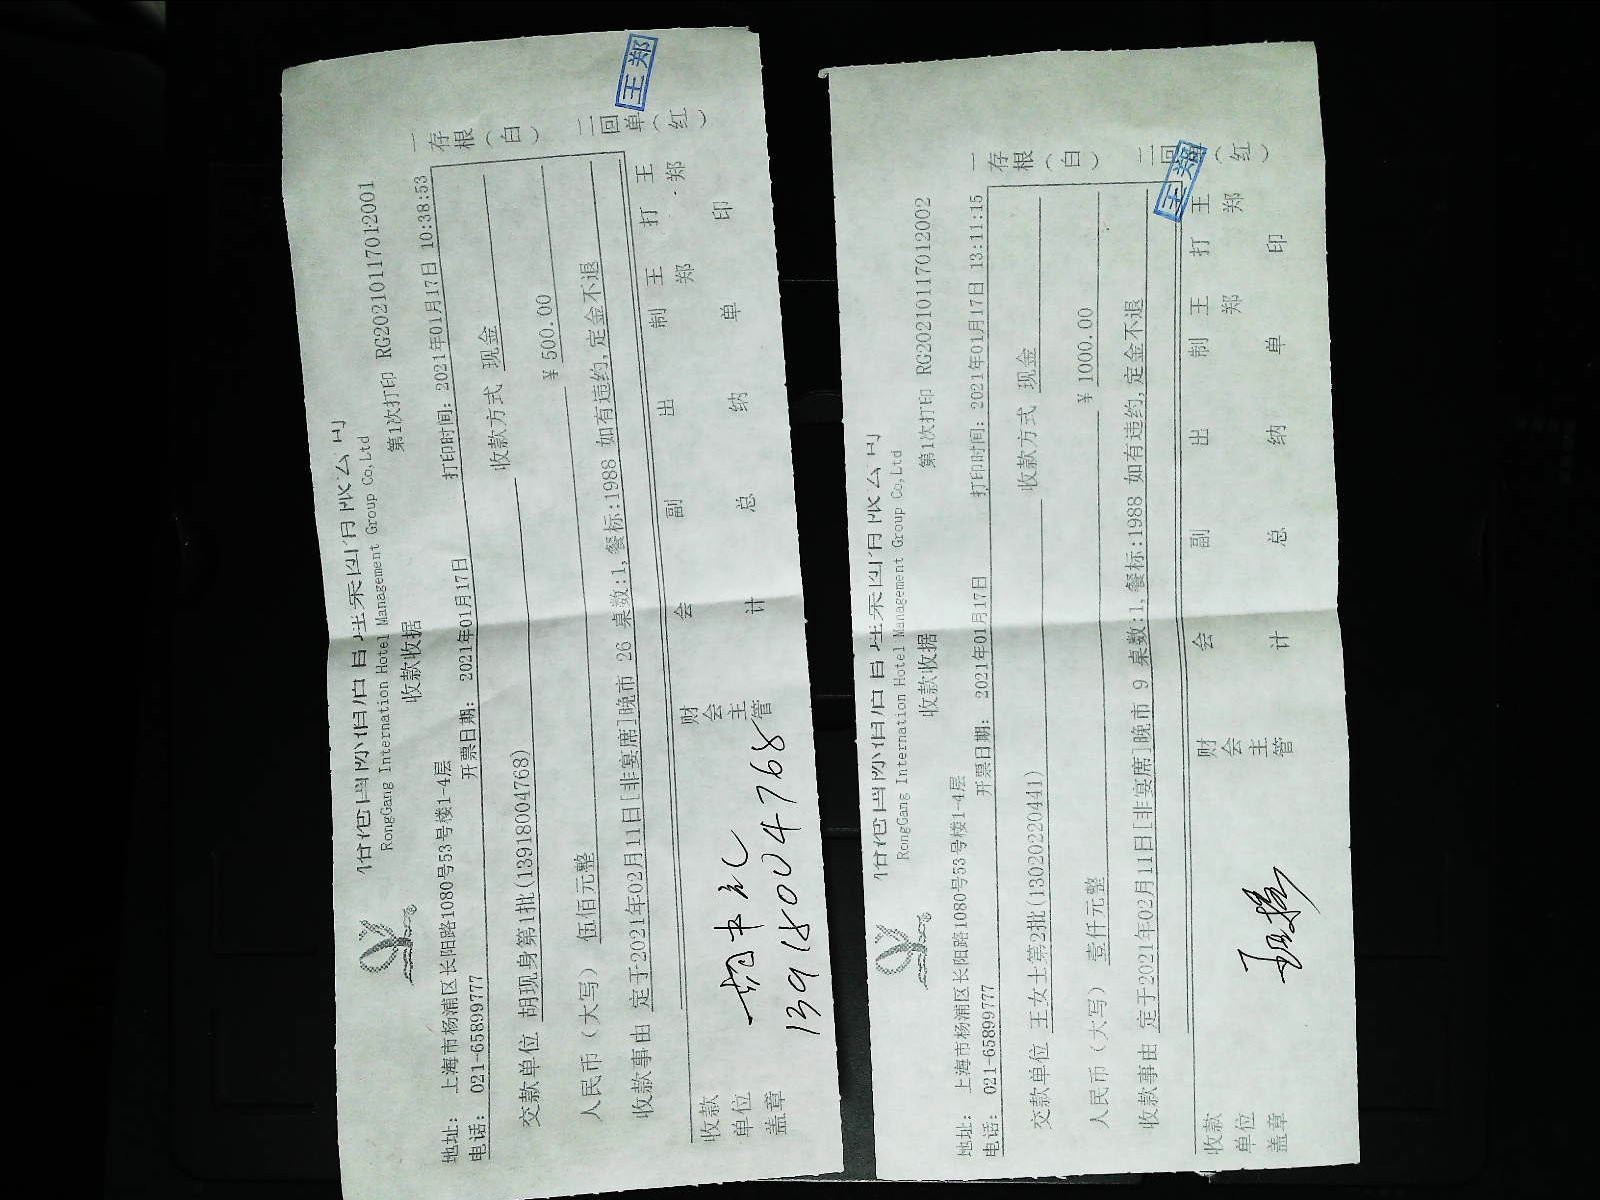 RongGang Internation Hotel Management Group Co,Ltd
收款收据
第1次打印 RG20210117012001
地址: 上海市杨浦区长阳路1080号53号楼1-4层
电话: 021-65899777
开票日期: 2021年01月17日
打印时间: 2021年01月17日 10:38:53
交款单位 胡现身第1批(13918004768)
收款方式 现金
人民币（大写） 伍佰元整
¥ 500.00
收款事由 定于2021年02月11日[非宴席]晚市 26 桌数:1,餐标:1988 如有违约,定金不退
一存根（白）
二回单（红）
收款单位盖章
13918004768
财会主管
会计
副总
出纳
制单
王郑
打印
王郑
王郑
RongGang Internation Hotel Management Group Co,Ltd
收款收据
第1次打印 RG20210117012002
地址: 上海市杨浦区长阳路1080号53号楼1-4层
电话: 021-65899777
开票日期: 2021年01月17日
打印时间: 2021年01月17日 13:11:15
交款单位 王女士第2批(13020220441)
收款方式 现金
人民币（大写） 壹仟元整
¥ 1000.00
收款事由 定于2021年02月11日[非宴席]晚市 9 桌数:1,餐标:1988 如有违约,定金不退
一存根（白）
二回（红）
收款单位盖章
财会主管
会计
副总
出纳
制单
王郑
打印
王郑
王郑